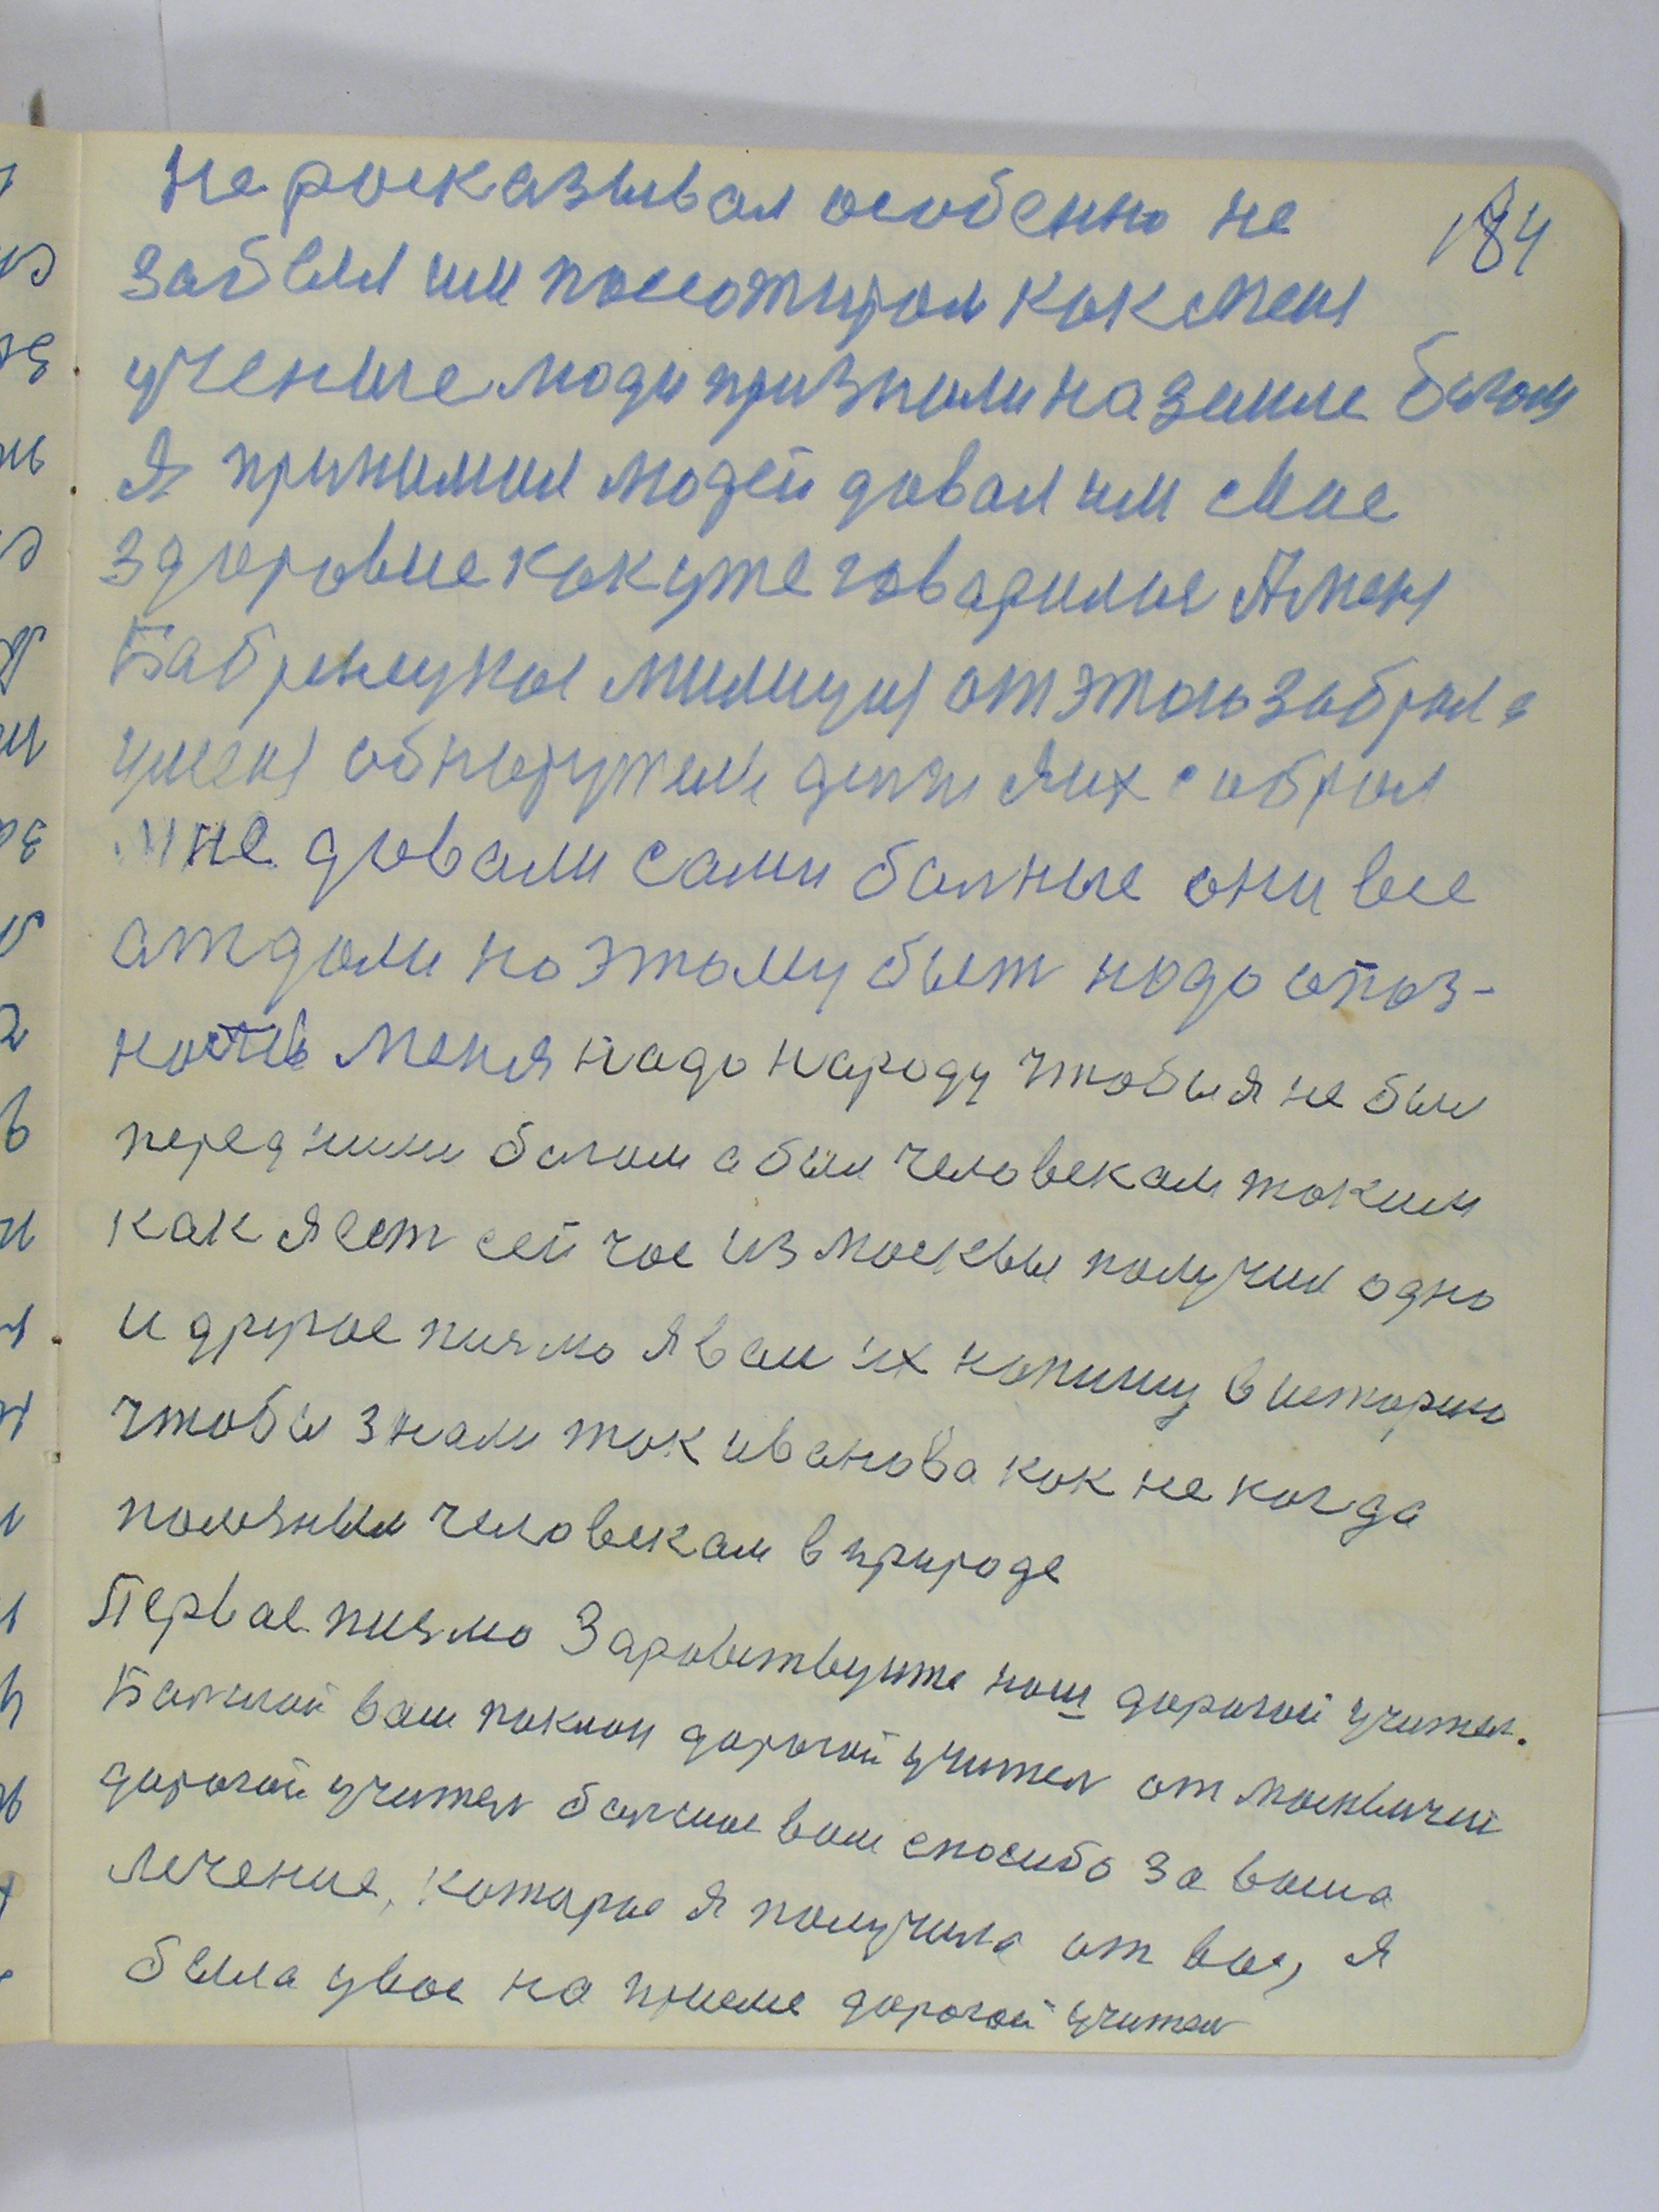 184
не росказывал особенно не
забыл им посожирам как меня
ученые люди признали на земле богом
Я принимал людей давал им свае
здоровие как уже говарилос А меня
Бабринецкая милиция от этого забрала
у меня обнаружели денги Я их собрал
мне довали сами балные они все
отдали поэтому быт надо опоз-
нать меня надо народу чтобы я не был
перед ними богом а был человекам таким
как я ест сейчас из москвы получил одно
и другое писмо я вам их напишу в историю
чтобы знали так иванова как не когда
полезным человекам в природе
Первае писмо Здравствуите наш дорогой учител.
Балшой вам поклон дорогой учител от москвичей
дорогой учител балшое вам спосибо за ваша
лечение, которое я получила от вас, я
была увас на приеме дорогой учител